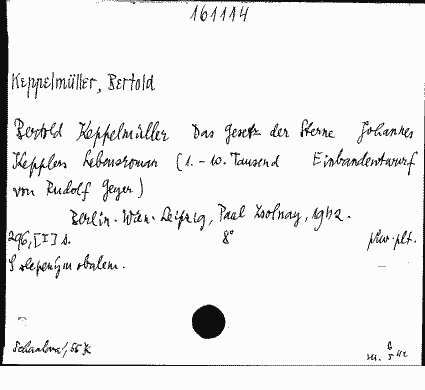 161114
Keppelmüller, Bertold
Bertold Keppelmüller Das Gesetz der Sterne Johannes
Kepplers Lebensroman (1.-10. Tausend Einbandentwurf
von Rudolf Geyer)
Berlin-Wien-Leipzig, Paul Zsolnay, 1942.
296, [I] s. 8° plw. plt.
S slepeným obalem.
55 K